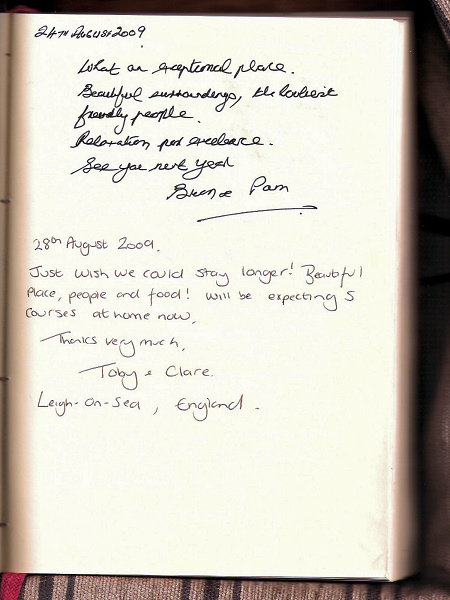 24TH AUGUST 2009
What an exceptional place.
Beautiful surroundings, the loveliest
friendly people.
Relaxation par excellence.
See you next year
Brian & Pam
28th August 2009.
Just wish we could stay longer! Beautiful
Place, people and food! Will be expecting 5
courses at home now.
Thanks very much,
Toby & Clare.
Leigh-on-Sea, England.